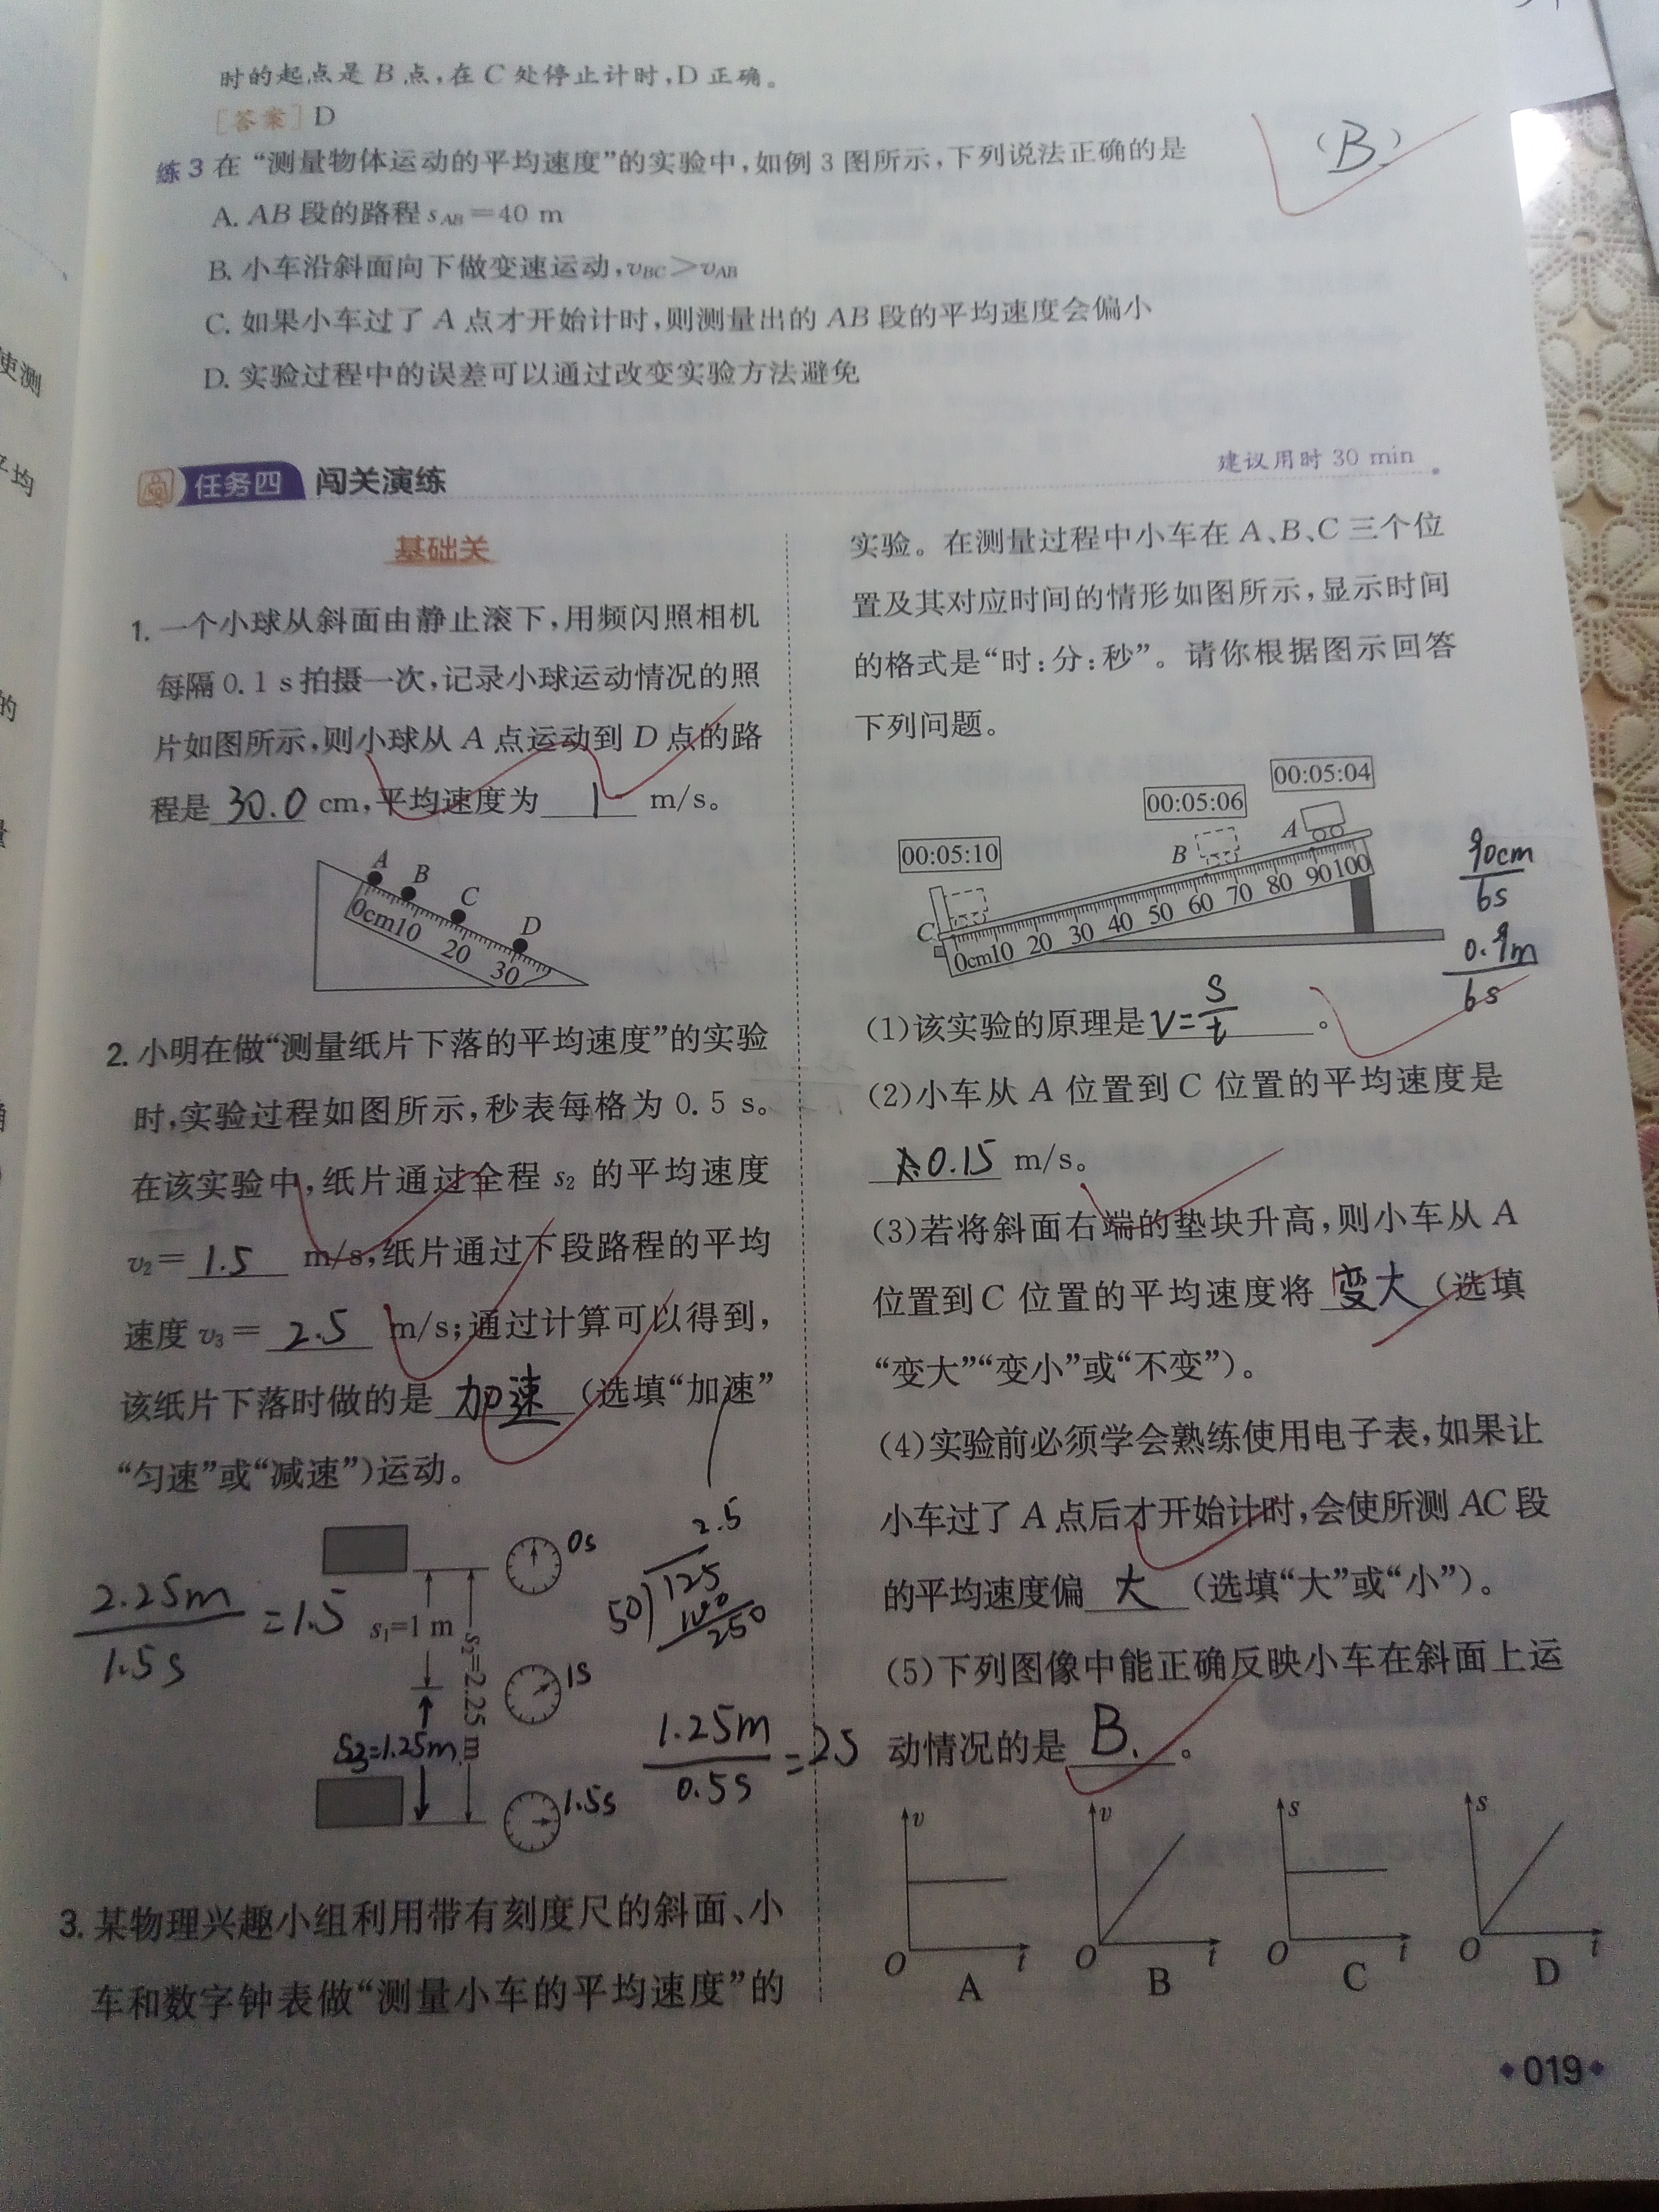 时的起点是 B 点,在 C 处停止计时,D 正确。
[答案] D
练 3 在 “测量物体运动的平均速度”的实验中,如例 3 图所示,下列说法正确的是
(B.)
A. AB 段的路程 sAB=40 m
B. 小车沿斜面向下做变速运动,vBC>vAB
C. 如果小车过了 A 点才开始计时,则测量出的 AB 段的平均速度会偏小
D. 实验过程中的误差可以通过改变实验方法避免
任务四 闯关演练
建议用时 30 min
基础关
1. 一个小球从斜面由静止滚下,用频闪照相机
每隔 0.1 s 拍摄一次,记录小球运动情况的照
片如图所示,则小球从 A 点运动到 D 点的路
程是 30.0 cm,平均速度为 1 m/s。
A
B
C
D
0cm10 20 30
2. 小明在做“测量纸片下落的平均速度”的实验
时,实验过程如图所示,秒表每格为 0.5 s。
在该实验中,纸片通过全程 s2 的平均速度
v2= 1.5 m/s,纸片通过下段路程的平均
速度 v3= 2.5 m/s;通过计算可以得到,
该纸片下落时做的是 加速 (选填“加速”
“匀速”或“减速”)运动。
0s
2.25m
1.5s
=1.5
s1=1 m
s2=2.25 m
1s
S3=1.25m
1.5s
2.5
50)125
100
250
1.25m
0.5s
=2.5
3. 某物理兴趣小组利用带有刻度尺的斜面、小
车和数字钟表做“测量小车的平均速度”的
实验。在测量过程中小车在 A、B、C 三个位
置及其对应时间的情形如图所示,显示时间
的格式是“时:分:秒”。请你根据图示回答
下列问题。
00:05:04
00:05:06
00:05:10
A
B
C
0cm10 20 30 40 50 60 70 80 90 100
90cm
6s
0.9m
6s
(1)该实验的原理是 V=S/t 。
(2)小车从 A 位置到 C 位置的平均速度是
0.15 m/s。
(3)若将斜面右端的垫块升高,则小车从 A
位置到 C 位置的平均速度将 变大 (选填
“变大”“变小”或“不变”)。
(4)实验前必须学会熟练使用电子表,如果让
小车过了 A 点后才开始计时,会使所测 AC 段
的平均速度偏 大 (选填“大”或“小”)。
(5)下列图像中能正确反映小车在斜面上运
动情况的是 B. 。
v
O
t
A
v
O
t
B
s
O
t
C
s
O
t
D
019